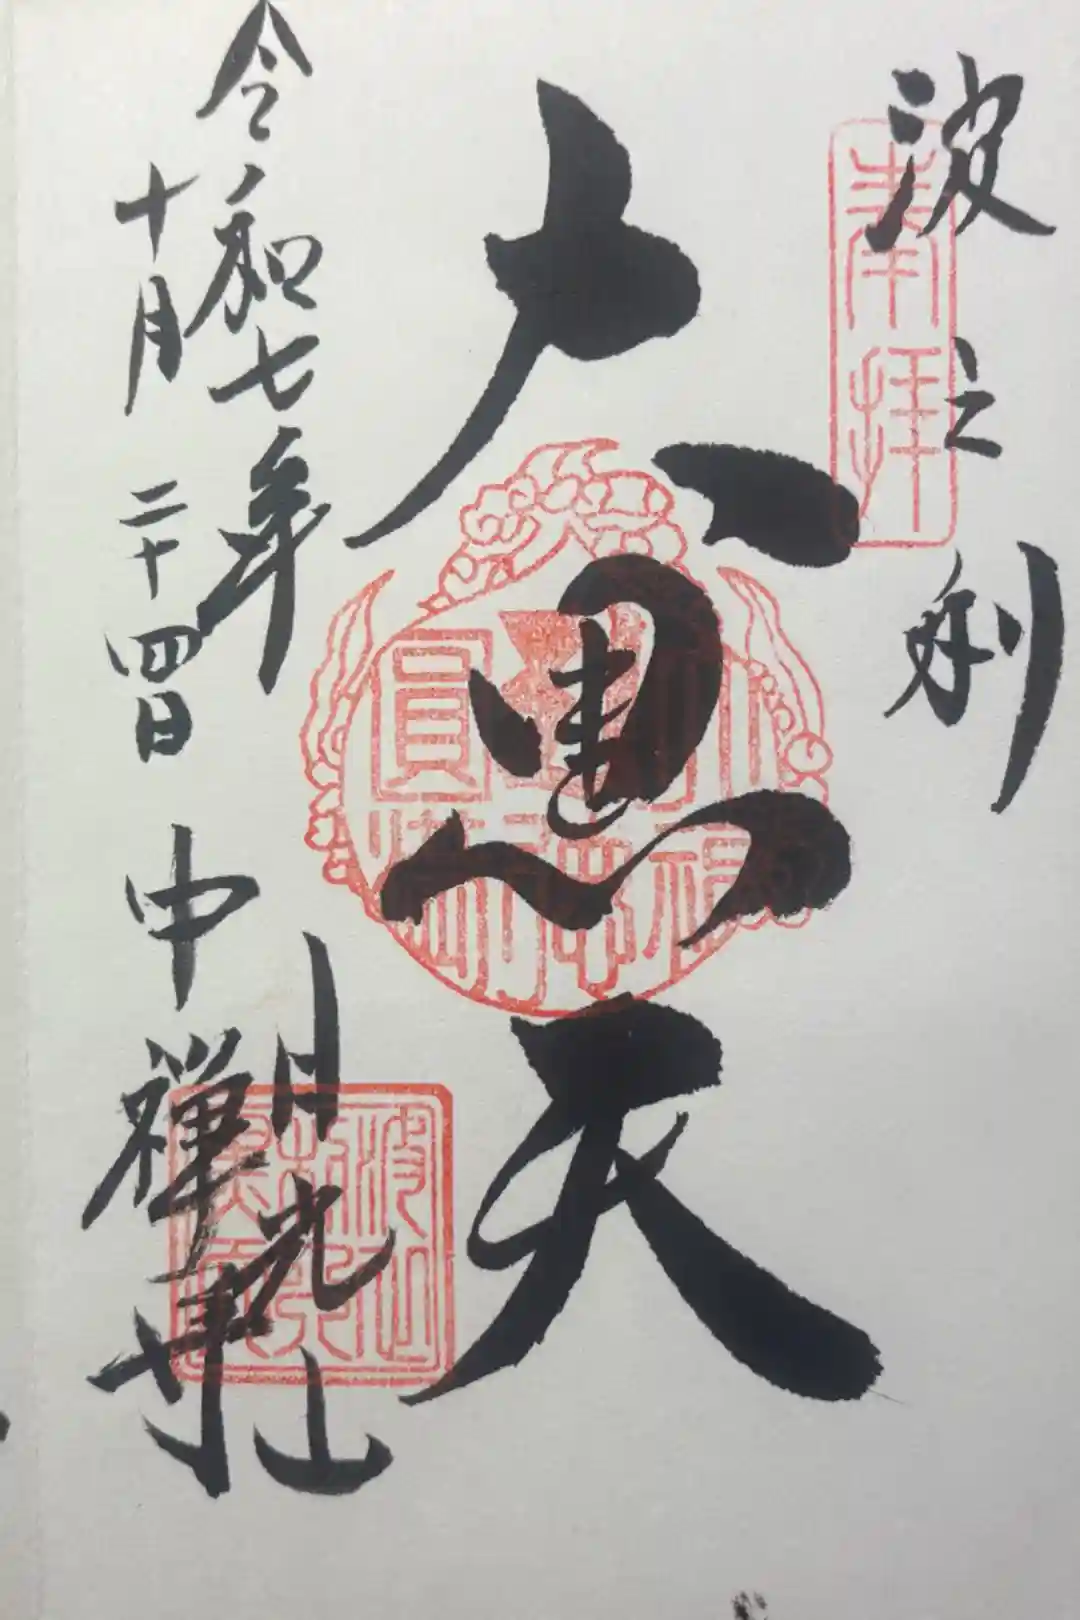 奉拝
波之利
大黒天
日光山
中禅寺
令和七年
十月二十四日